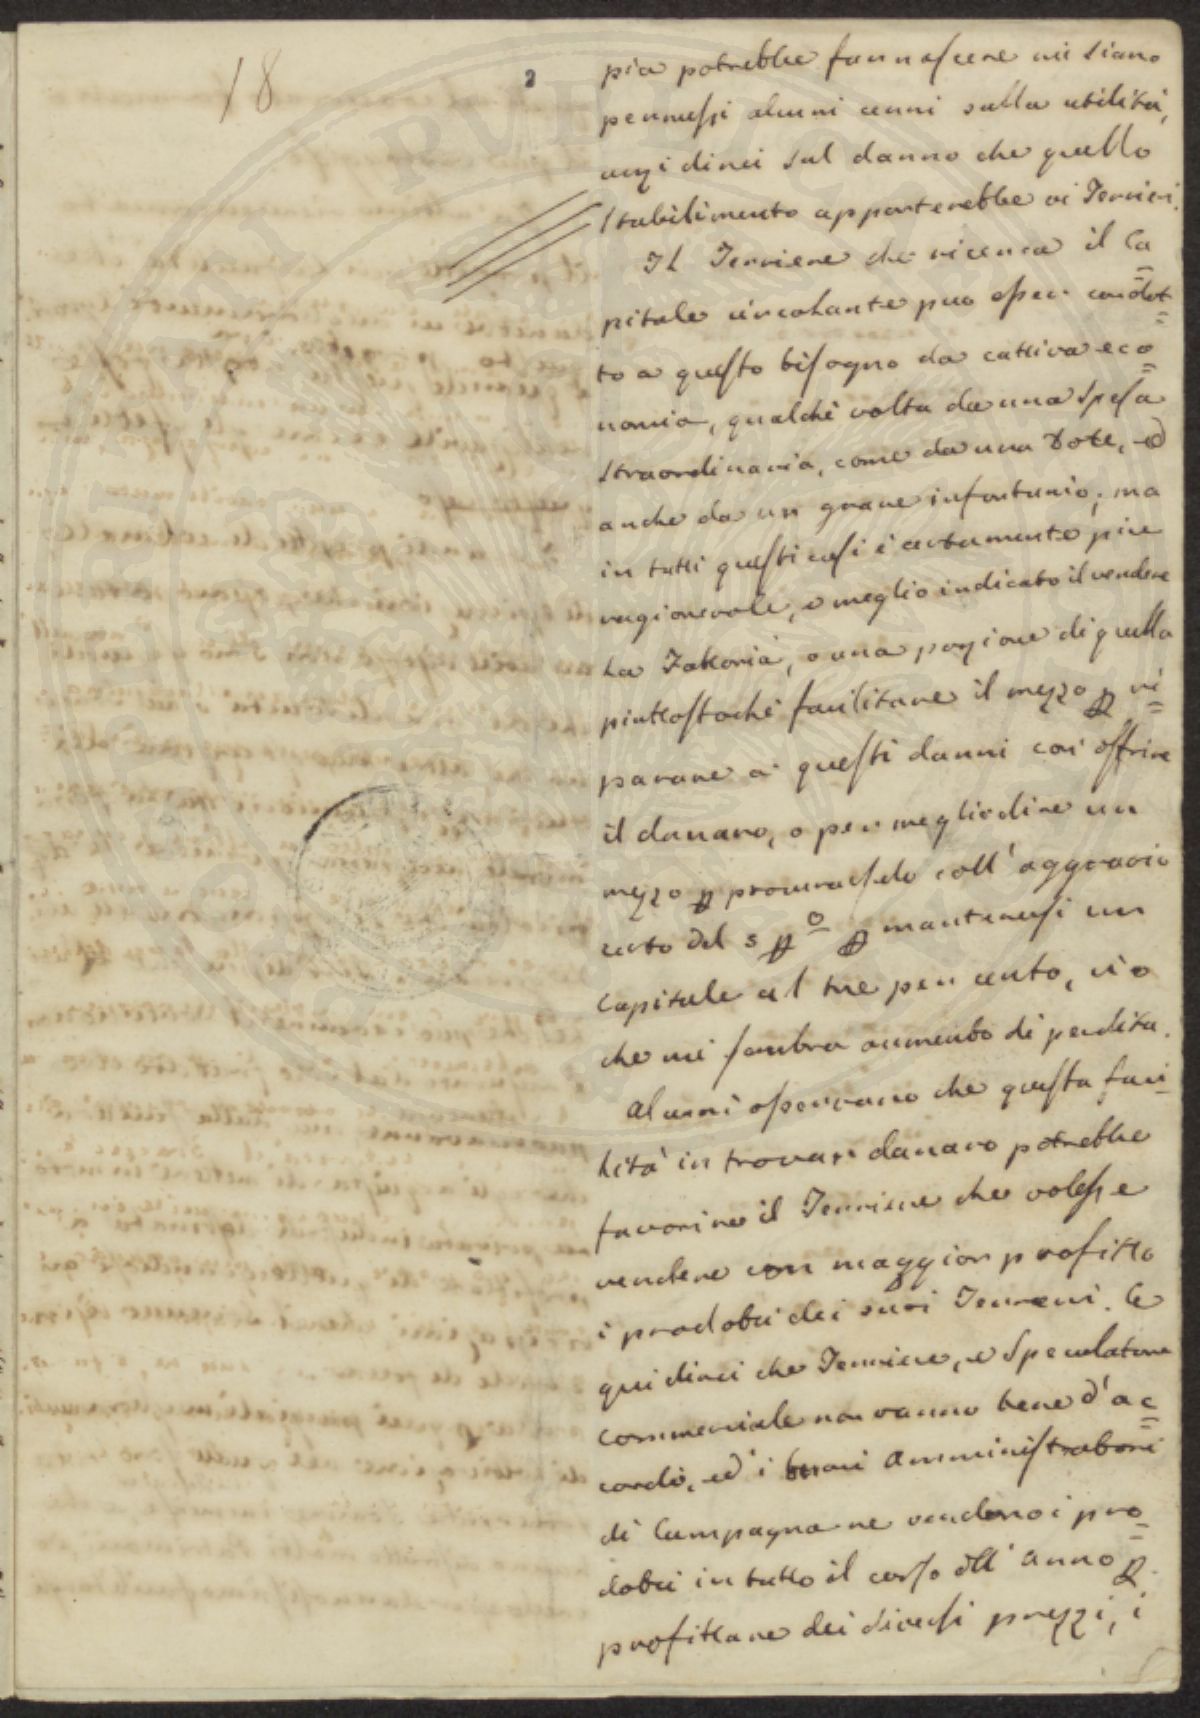 18
2
pia potrebbe far nascere mi siano
permessi alcuni cenni sulla utilità,
anzi direi sul danno che quello
Stabilimento apporterebbe ai Terrieri.
Il Terriere che ricerca il Ca
pitale circolante puo esser condot=
to a questo bisogno da cattiva eco=
nomia, qualche volta da una Spesa
straordinaria, come da una Dote, ed
anche da un grave infortunio; ma
in tutti questi casi è certamente piu
ragionevole, e meglio indicato il vendere
la Fattoria, o una pozione di quella
piuttostochè facilitare il mezzo p ri=
parare a questi danni coi offrire
il danaro, o per meglio dire un
mezzo p procurarselo coll' aggravio
certo del 5 p o p mantenersi un
Capitale al tre per cento, ciò
che mi sembra aumento di perdita.
Alcuni osservano che questa faci=
lità in trovar danaro potrebbe
favorire il Terriere che volesse
vendere con maggior profitto
i prodotti dei suoi Terreni. E
qui direi che Terriere, e Speculatore
commerciale non vanno bene d'ac=
cordo, ed i buoni Amministratori
di Campagna ne vendono i pro=
dotti in tutto il corso dell' anno p
profittare dei diversi prezzi, i